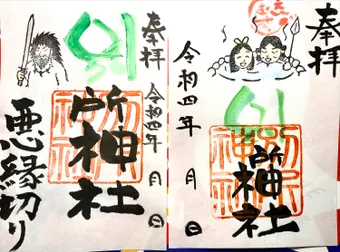 奉拝
所神社
令和四年 月 日
奉拝
令和四年 月 日
所神社
悪縁切り